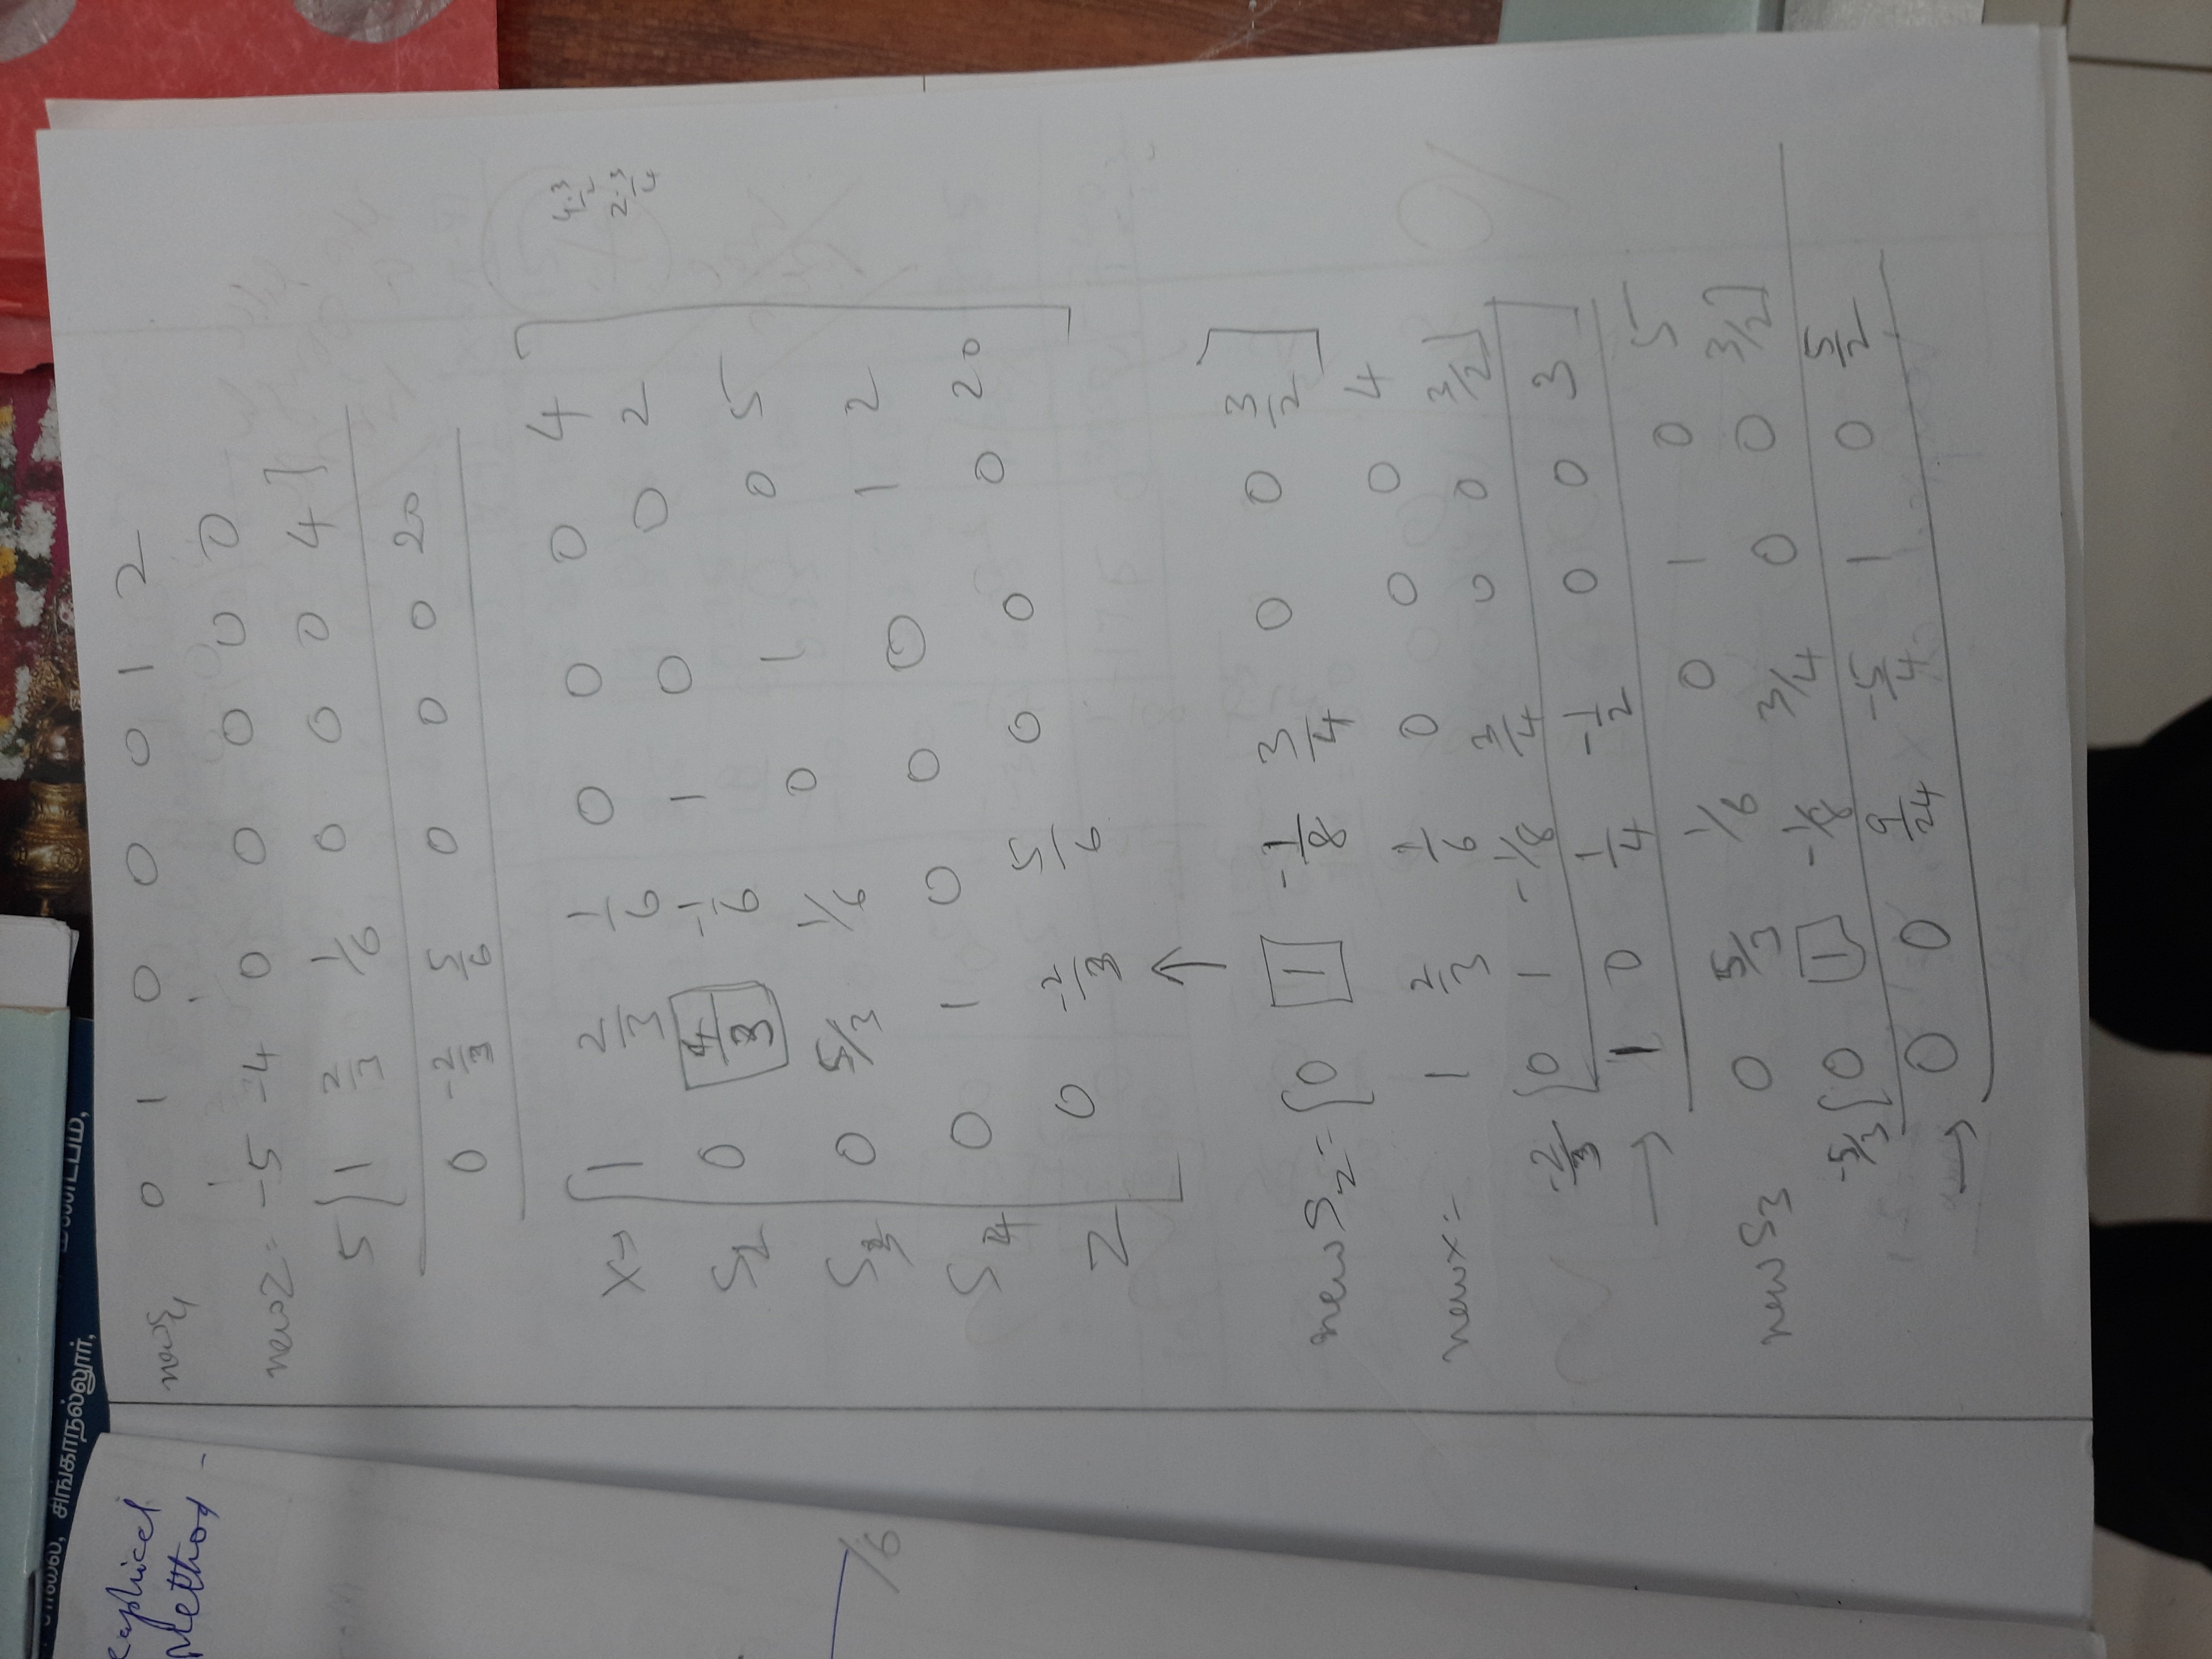 சாலை, சிங்காநல்லூர்,
Method -
/6
new S4 0 1 0 0 0 1 2
new Z = -5 -4 0 0 0 0 0
5 [ 1 2/3 1/6 0 0 0 4 ]
0 -2/3 5/6 0 0 0 20
X→ 1 2/3 1/6 0 0 0 4
4·3/2
S2 0 4/3 -1/6 1 0 0 2
2·3/4
S3 0 5/3 1/6 0 1 0 5
S4 0 1 0 0 0 1 2
Z 0 -2/3 5/6 0 0 0 20
↑
new S2 = [ 0 1 -1/8 3/4 0 0 3/2 ]
new x = 1 2/3 1/6 0 0 0 4
-2/3 [ 0 1 -1/8 3/4 0 0 3/2 ]
→ 1 0 1/4 -1/2 0 0 3
new S3 0 5/3 1/6 0 1 0 5
-5/3 [ 0 1 -1/8 3/4 0 0 3/2 ]
→ 0 0 9/24 -5/4 1 0 5/2